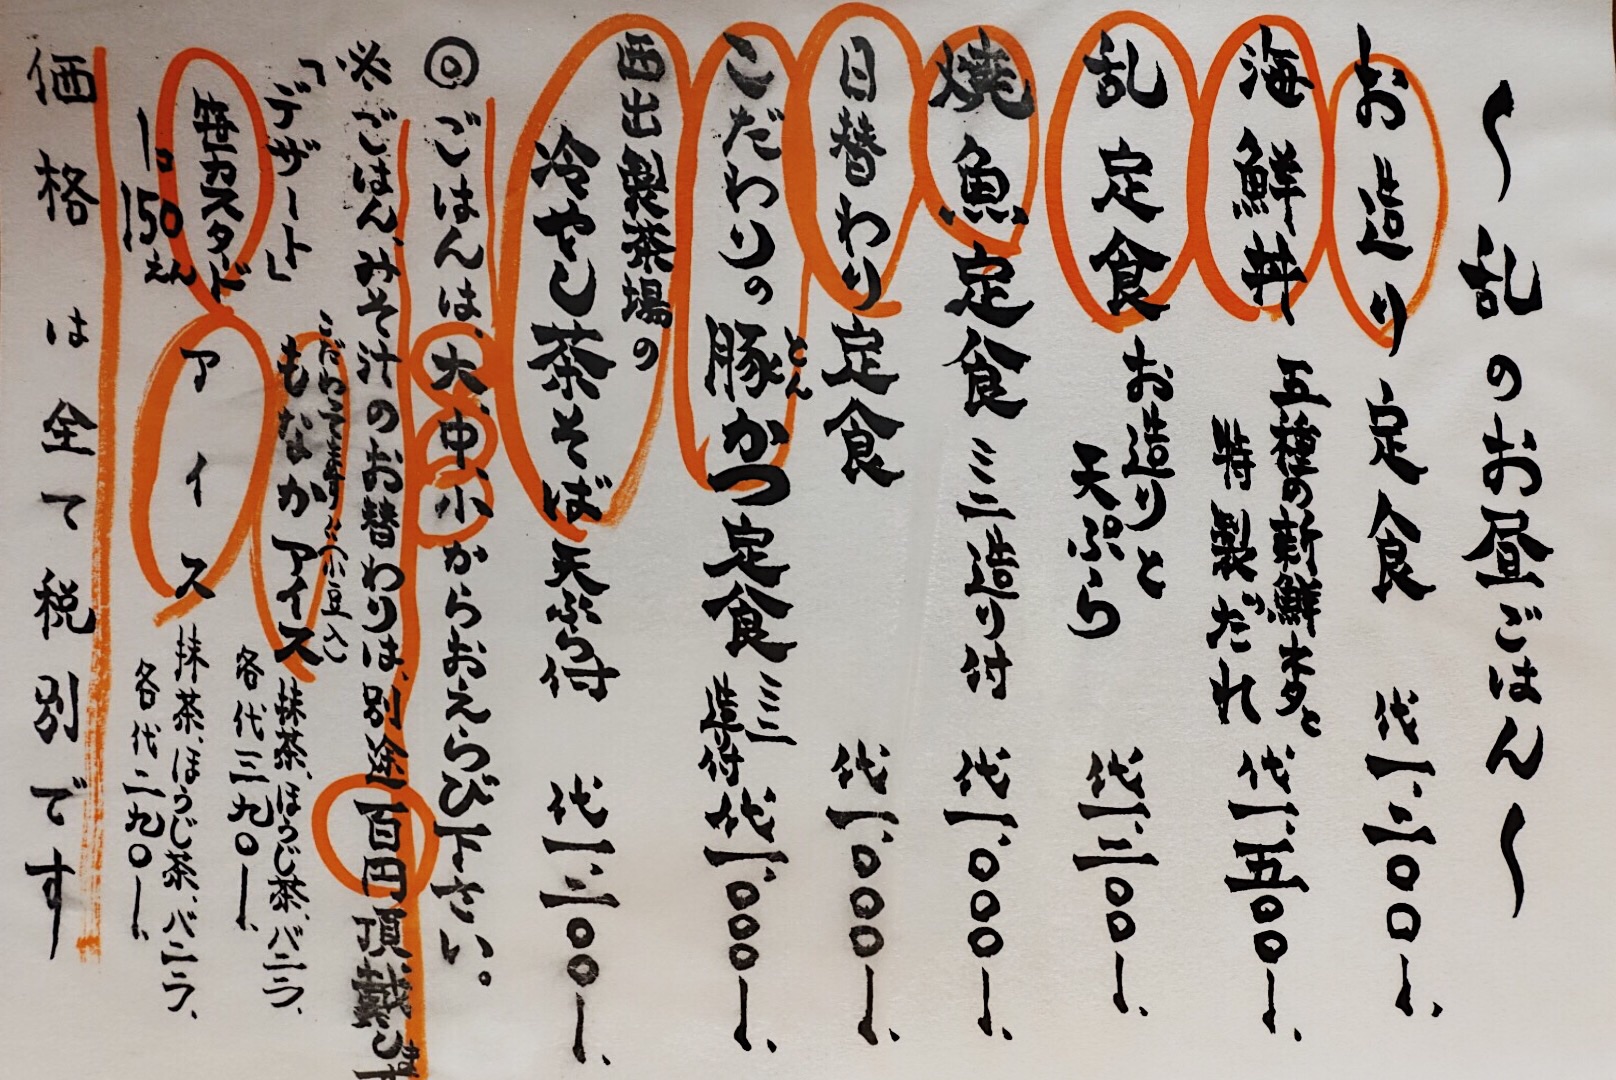 〜乱のお昼ごはん〜
お造り定食 代一、二〇〇ー、
海鮮丼 五種の新鮮ネタと
特製だれ 代一、五〇〇ー、
乱定食 お造りと
天ぷら 代一、三〇〇ー、
焼魚定食 ミニ造り付 代一、〇〇〇ー、
日替わり定食 代一、〇〇〇ー、
こだわりの豚かつ定食 ミニ造り付 代一、〇〇〇ー、
とん
西出製茶場の
冷やし茶そば 天ぷら付 代一、二〇〇ー、
◎ごはんは、大、中、小からおえらび下さい。
※ごはん、みそ汁のお替わりは、別途百円頂戴します
「デザート」
こだわってます…(小豆入)
もなかアイス 抹茶、ほうじ茶、バニラ、
各代三九〇ー、
笹カスタード
1コ150えん
アイス 抹茶、ほうじ茶、バニラ、
各代二九〇ー、
価格は全て税別です